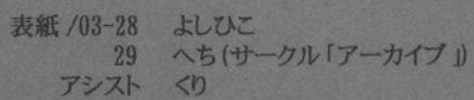 表紙/03-28 よしひこ
29 へち(サークル「アーカイブ」)
アシスト くり